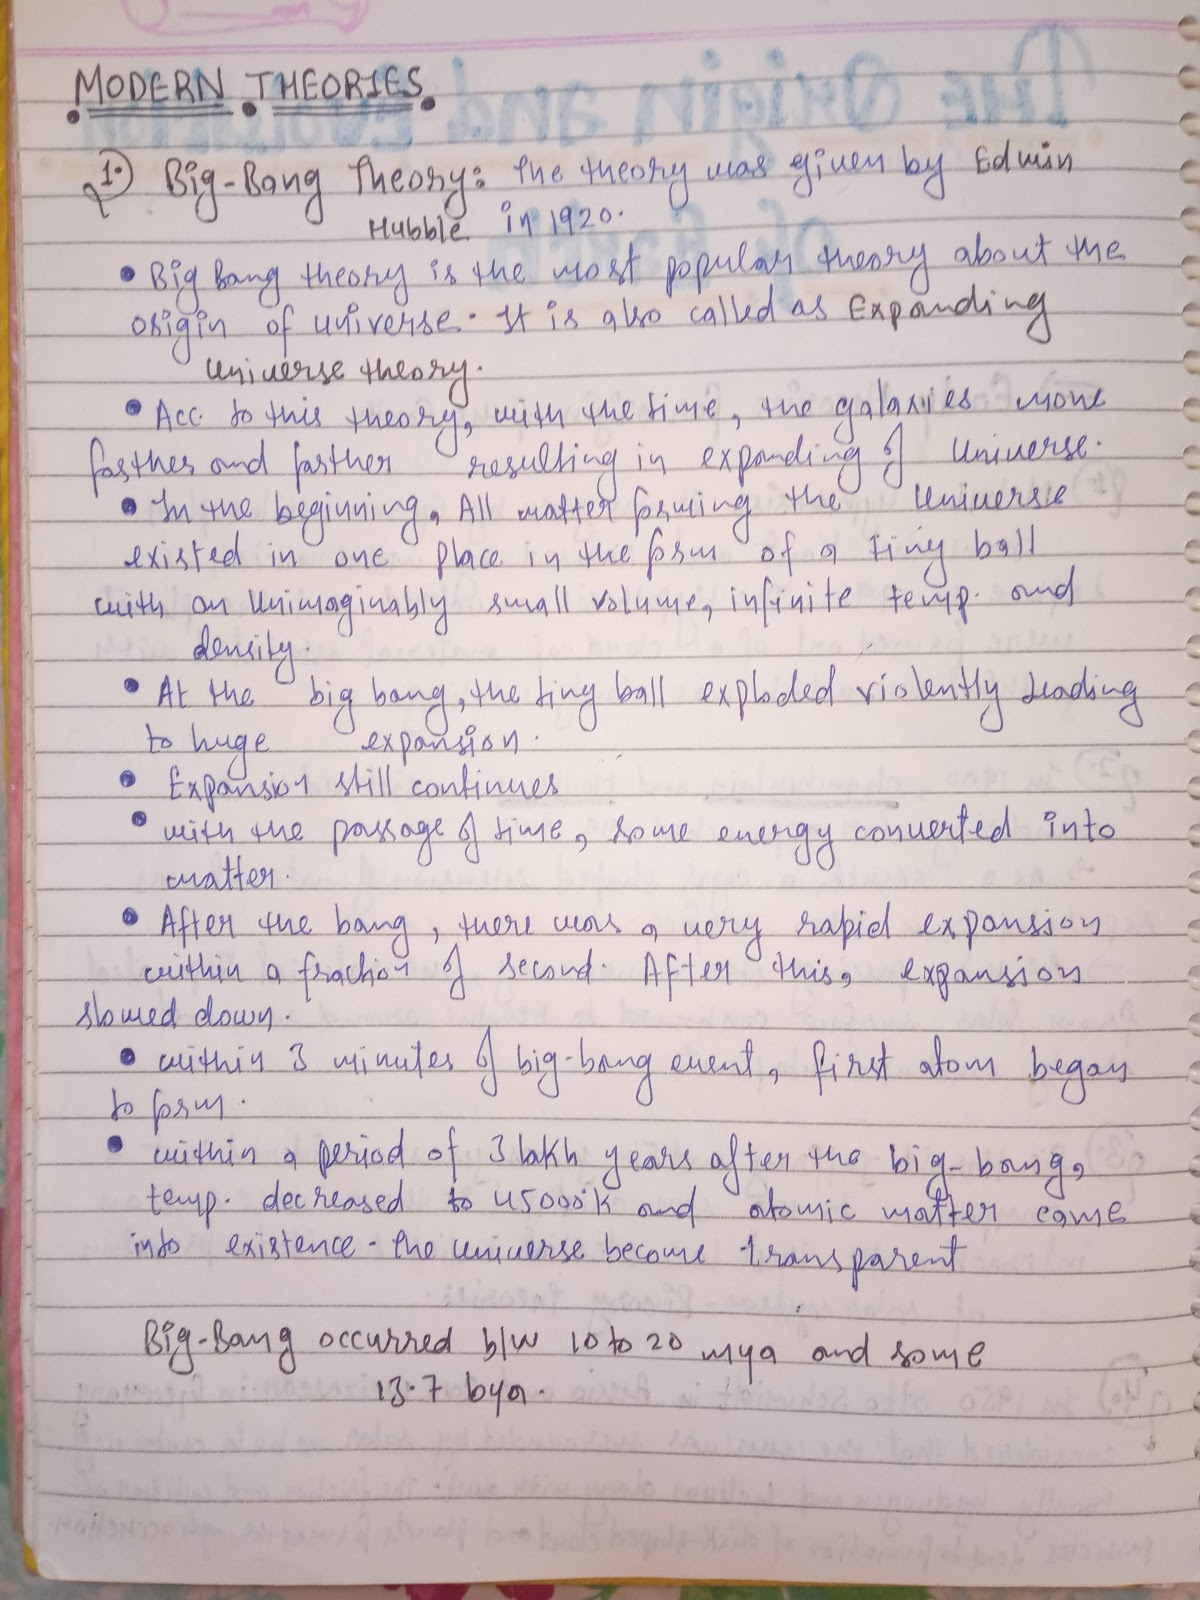 MODERN THEORIES
1. Big-Bang Theory: The theory was given by Edwin
Hubble in 1920.
• Big Bang theory is the most popular theory about the
origin of universe. It is also called as Expanding
Universe theory.
• Acc. to this theory, with the time, the galaxies move
farther and farther resulting in expanding of Universe.
• In the beginning, All matter forming the Universe
existed in one place in the form of a tiny ball
with an Unimaginably small volume, infinite temp. and
density.
• At the big bang, the tiny ball exploded violently leading
to huge expansion.
• Expansion still continues
• with the passage of time, some energy converted into
matter.
• After the bang, there was a very rapid expansion
within a fraction of second. After this, expansion
slowed down.
• within 3 minutes of big-bang event, first atom began
to form.
• within a period of 3 lakh years after the big-bang,
temp. decreased to 45000K and atomic matter came
into existence. The universe become transparent
Big-Bang occurred b/w 10 to 20 mya and some
13.7 bya.